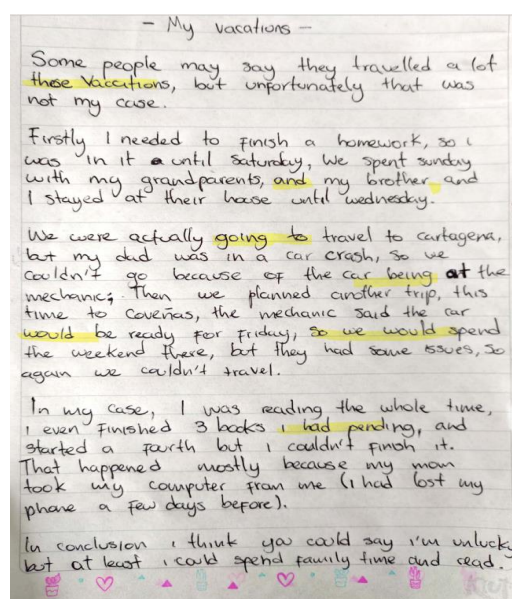 - My vacations -
Some people may say they travelled a lot
these vaccations, but unfortunately that was
not my case.
Firstly I needed to finish a homework, so i
was in it until saturday, we spent sunday
with my grandparents, and my brother and
I stayed at their house until wednesday.
We were actually going to travel to cartagena,
but my dad was in a car crash, so we
couldn't go because of the car being at the
mechanic; Then we planned another trip, this
time to Coveñas, the mechanic said the car
would be ready for friday, so we would spend
the weekend there, but they had some issues, so
again we couldn't travel.
In my case, I was reading the whole time,
i even finished 3 books i had pending, and
started a fourth but i couldn't finish it.
That happened mostly because my mom
took my computer from me (i had lost my
phone a few days before).
In conclusion i think you could say i'm unlucky
but at least i could spend family time and read.